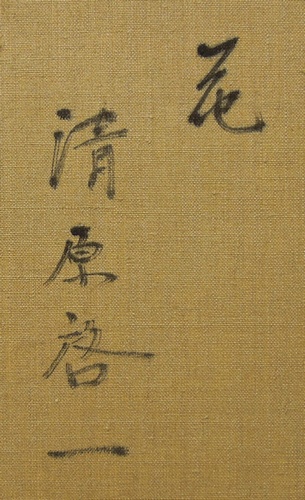 花
清原啓一